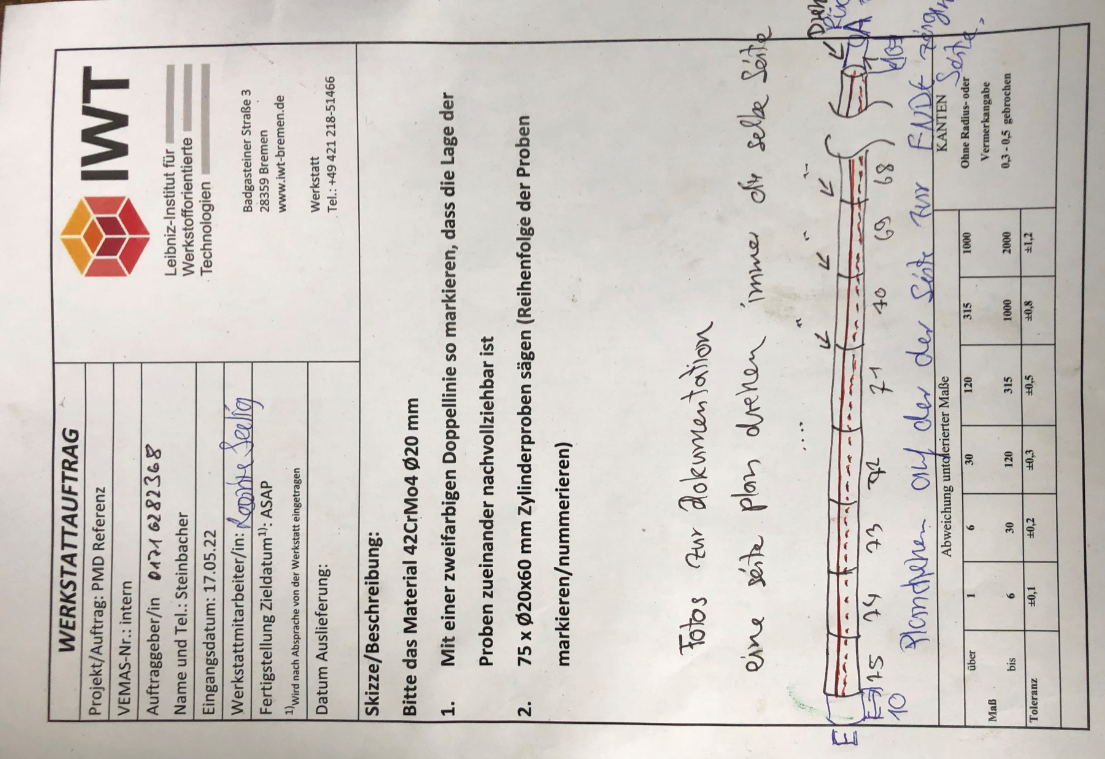 WERKSTATTAUFTRAG
Projekt/Auftrag: PMD Referenz
VEMAS-Nr.: intern
Auftraggeber/in 0171 6282368
Name und Tel.: Steinbacher
Eingangsdatum: 17.05.22
Werkstattmitarbeiter/in: Seelig
Fertigstellung Zieldatum1): ASAP
1)Wird nach Absprache von der Werkstatt eingetragen
Datum Auslieferung:
IWT
Leibniz-Institut für
Werkstofforientierte
Technologien
Badgasteiner Straße 3
28359 Bremen
www.iwt-bremen.de
Werkstatt
Tel.: +49 421 218-51466
Skizze/Beschreibung:
Bitte das Material 42CrMo4 Ø20 mm
1. Mit einer zweifarbigen Doppellinie so markieren, dass die Lage der
Proben zueinander nachvollziehbar ist
2. 75 x Ø20x60 mm Zylinderproben sägen (Reihenfolge der Proben
markieren/nummerieren)
Fotos zur Dokumentation
eine seite plan drehen immer die selbe Seite
E
E 75 74 73 72 71 70 69 68
10
A
Plandrehen auf der der Seite zur ENDE
Seite.
Abweichung untolerierter Maße
KANTEN
Maß über 1 6 30 120 315 1000
bis 6 30 120 315 1000 2000
Toleranz ±0,1 ±0,2 ±0,3 ±0,5 ±0,8 ±1,2
Ohne Radius- oder
Vermerkangabe
0,3 - 0,5 gebrochen